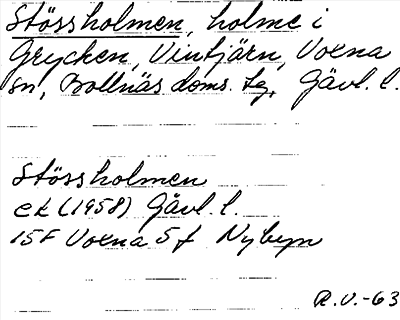 Stössholmen, holme i
Grycken, Vintjärn, Voxna
sn, Bollnäs doms. tg, Gävl. l.
Stössholmen
ek (1958) Gävl. l.
15F Voxna 5f Nybyn
R.V.-63